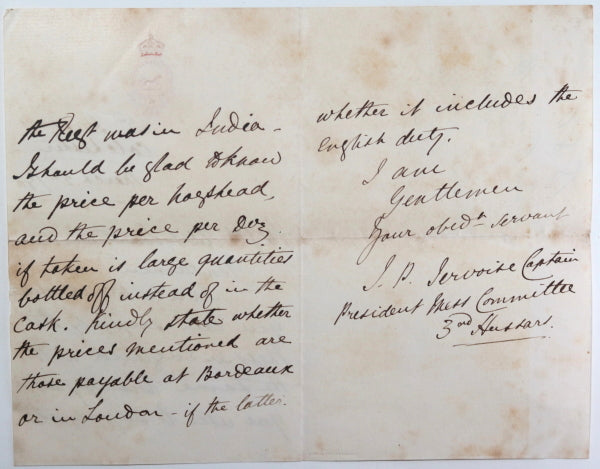 the Regt was in India -
I should be glad to know
the price per hogshead,
and the price per Doz
if taken is large quantities
bottled off instead of in the
Cask. Kindly state whether
the prices mentioned are
those payable at Bordeaux
or in London - if the latter.
whether it includes the
English duty.
I am
Gentlemen
Your obedt servant
J. P. Jervoise Captain
President Mess Committee
3rd Hussars.